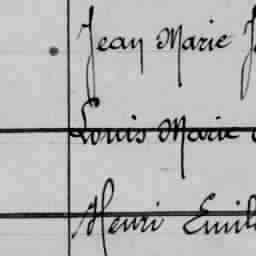 Jean Marie J
Louis Marie
Henri Emil